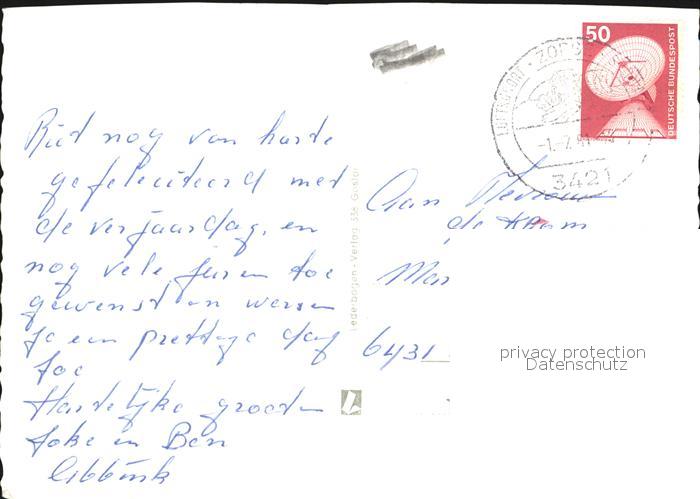 Riet nog van harte
gefeliciteerd met
de verjaardag, en
nog vele jaren toe
gewenst en wensen
je een prettige dag
toe
Hartelijke groeten
Joke en Ben
Gibbink
Lederbogen - Verlag 336 Goslar
50
DEUTSCHE BUNDESPOST
LUFTKURORT · ZORGE
-1.-7.
3421
Aan Mevrouw
de
6431
privacy protection
Datenschutz